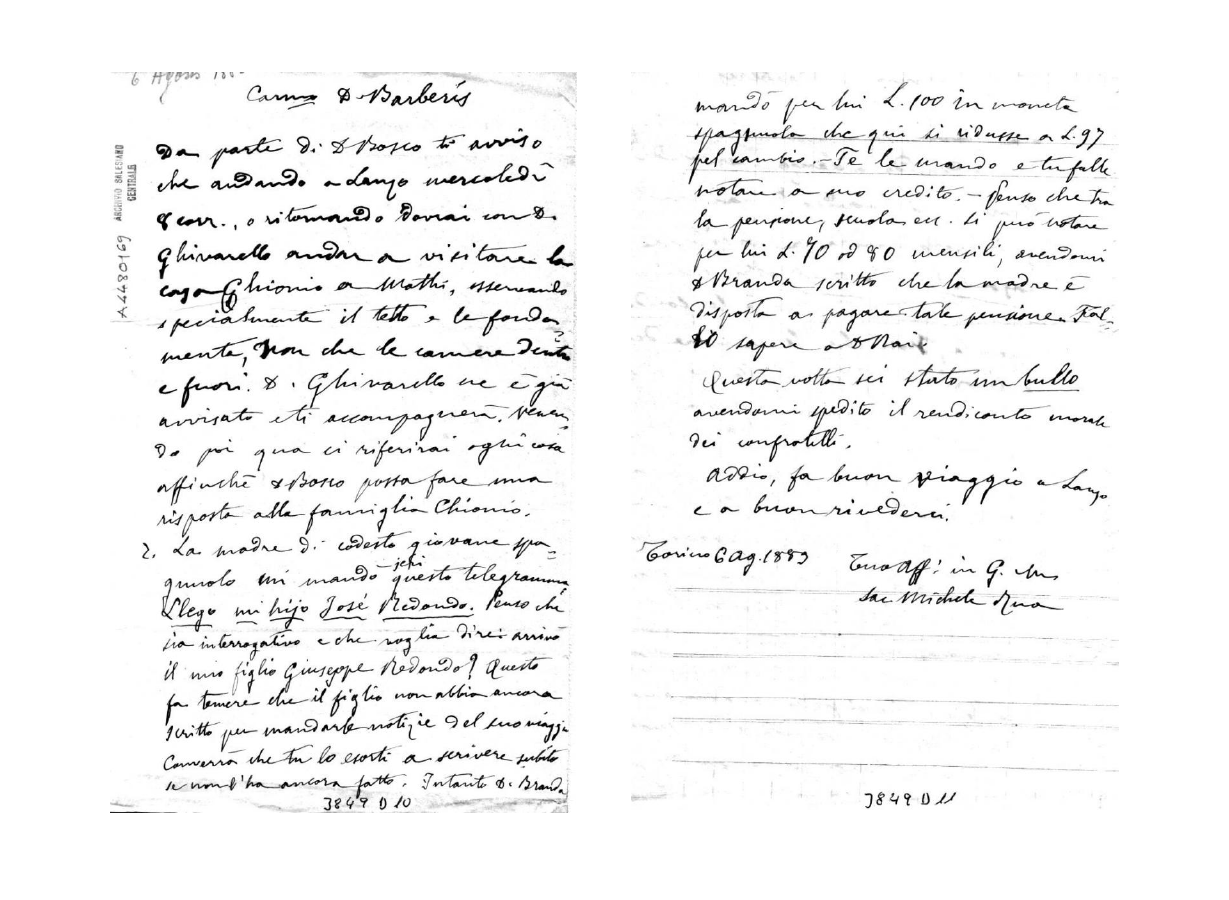 6 Agosto 188
Carmo D. Barberis
Da parte di D Bosco ti avviso
che andando a Lanzo mercoledì
8 corr., o ritornando dovrai con D.
Ghivarello andar a visitare la
casa Chionio a Mathi, osservando
specialmente il tetto e le fonda=
menta, non che le camere dentro
e fuori. D. Ghivarello ne è già
avvisato e ti accompagnerà. Venen=
do poi qua ci riferirai ogni cosa
affinchè D Bosco possa fare una
risposta alla famiglia Chionio.
2. La madre di codesto giovane spa=
gnuolo mi mandò jeri questo telegramma
Llego mi hijo José Redondo. Penso che
sia interrogativo e che voglia dire: arrivò
il mio figlio Giuseppe Redondo? Questo
fa temere che il figlio non abbia ancora
scritto per mandarle notizie del suo viaggio
Converrà che tu lo esorti a scrivere subito
se non l'ha ancora fatto. Intanto D. Branda
3849 D 10
ARCHIVIO SALESIANO
CENTRALE
A4480169
mandò per lui L. 100 in moneta
spagnuola che qui si ridusse a L. 97
pel cambio. - Te le mando e tu falle
notare a suo credito. - Penso che tra
la pensione, scuola ecc. si può notare
per lui L. 70 od 80 mensili, avendomi
D Branda scritto che la madre è
disposta a pagare tale pensione. Fal=
lo sapere a D Rossi
Questa volta sei stato un bullo
avendomi spedito il rendiconto morale
dei confratelli.
Addio, fa buon viaggio a Lanzo
e a buon rivederci.
Torino 6 Ag. 1883
Tuo Aff: in G. M
Sac Michele Rua
3849 D 11